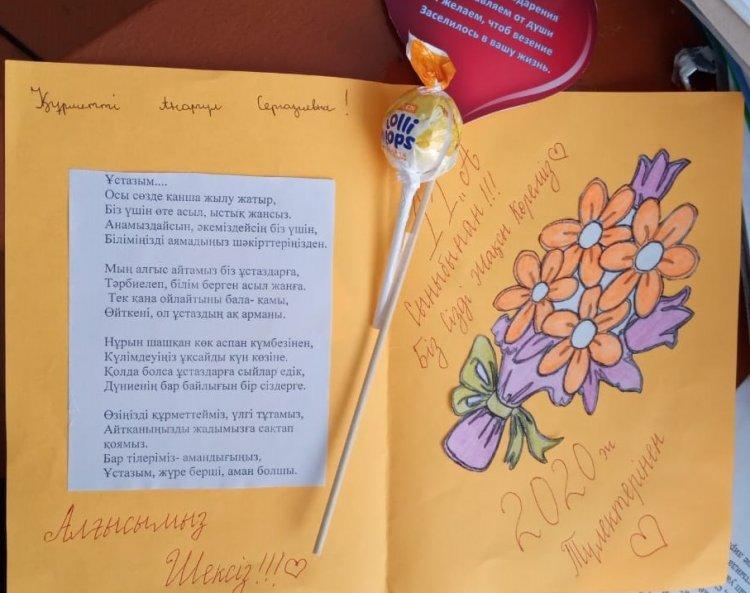 дарения
вляем от души
желаем, чтоб везение
Заселилось в вашу жизнь.
Құрметті Анаргул Сергазиевна!
Ұстазым....
Осы сөзде қанша жылу жатыр,
Біз үшін өте асыл, ыстық жансыз.
Анамыздайсын, әкеміздейсін біз үшін,
Біліміңізді аямадыңыз шәкірттеріңізден.
Мың алғыс айтамыз біз ұстаздарға,
Тәрбиелеп, білім берген асыл жанға.
Тек қана ойлайтыны бала- қамы,
Өйткені, ол ұстаздың ақ арманы.
Нұрын шашқан көк аспан күмбезінен,
Күлімдеуіңіз ұқсайды күн көзіне.
Қолда болса ұстаздарға сыйлар едік,
Дүниенің бар байлығын бір сіздерге.
Өзіңізді құрметтейміз, үлгі тұтамыз,
Айтқаныңызды жадымызға сақтап
қоямыз.
Бар тілеріміз- амандығыңыз,
Ұстазым, жүре берші, аман болшы.
Алғысымыз
Шексіз!!!
Lolli
pops
11 "А
Сыныбынан!!!
Біз Сізді Жақсы Көреміз
2020 ж
Түлектерінен